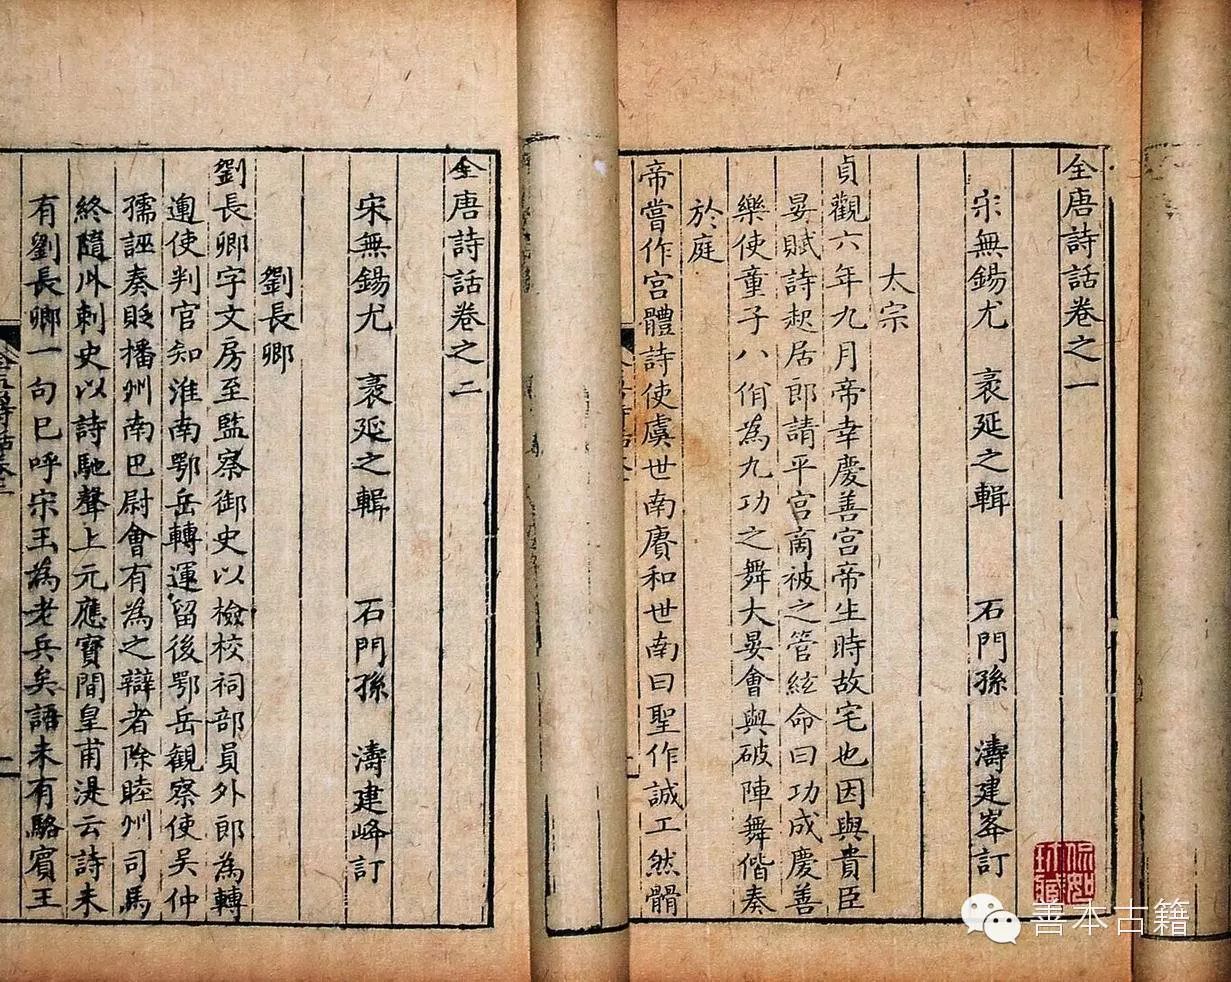 全唐詩話卷之一
宋無錫尤　袤延之輯　石門孫　濤建峯訂
太宗
貞觀六年九月帝幸慶善宮帝生時故宅也因與貴臣
晏賦詩起居郎請平宮商被之管絃命曰功成慶善
樂使童子八佾為九功之舞大晏會與破陣舞偕奏
於庭
帝嘗作宮體詩使虞世南賡和世南曰聖作誠工然體
全唐詩話卷之二
宋無錫尤　袤延之輯　石門孫　濤建峰訂
劉長卿
劉長卿字文房至監察御史以檢校祠部員外郎為轉
運使判官知淮南鄂岳轉運留後鄂岳觀察使吳仲
孺誣奏貶播州南巴尉會有為之辯者除睦州司馬
終隨州刺史以詩馳聲上元應寶間皇甫湜云詩未
有劉長卿一句已呼宋玉為老兵矣語未有駱賓王
善本古籍